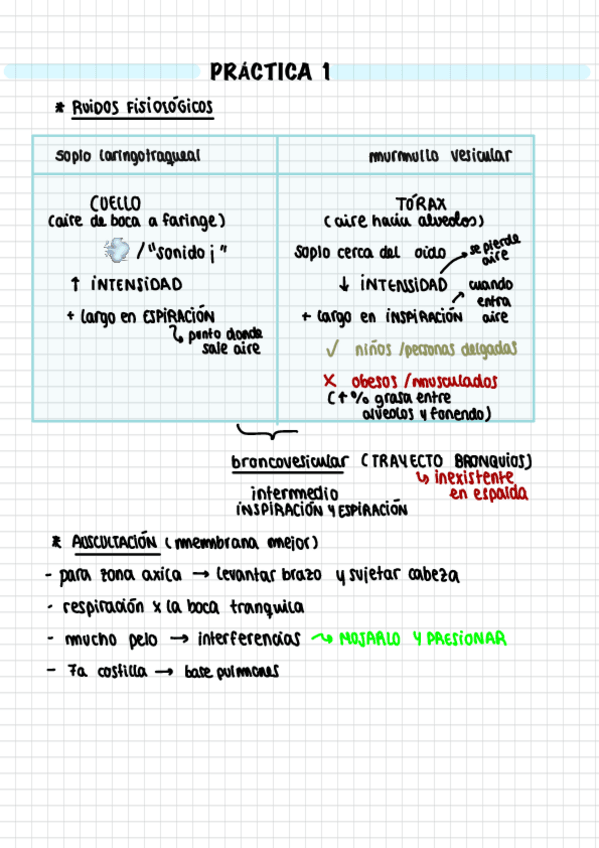 PRÁCTICA 1
* RUIDOS FISIOLÓGICOS
soplo laringotraqueal
murmullo vesicular
CUELLO
(aire de boca a faringe)
💨 / "sonido j"
↑ INTENSIDAD
+ largo en ESPIRACIÓN
↳ punto donde
sale aire
TÓRAX
(aire haciu alveolos)
soplo cerca del oído
se pierde
aire
↓ INTENSIDAD
cuando
entra
aire
+ largo en INSPIRACIÓN
✓ niños /personas delgadas
X obesos /musculados
(↑% grasa entre
alveolos y fonendo)
broncovesicular (TRAYECTO BRONQUIOS)
↳ inexistente
en espalda
intermedio
INSPIRACIÓN Y ESPIRACIÓN
* AUSCULTACIÓN (membrana mejor)
- para zona axila → levantar brazo y sujetar cabeza
- respiración x la boca tranquila
- mucho pelo → interferencias ↝ MOJARLO Y PRESIONAR
- 7a costilla → base pulmones